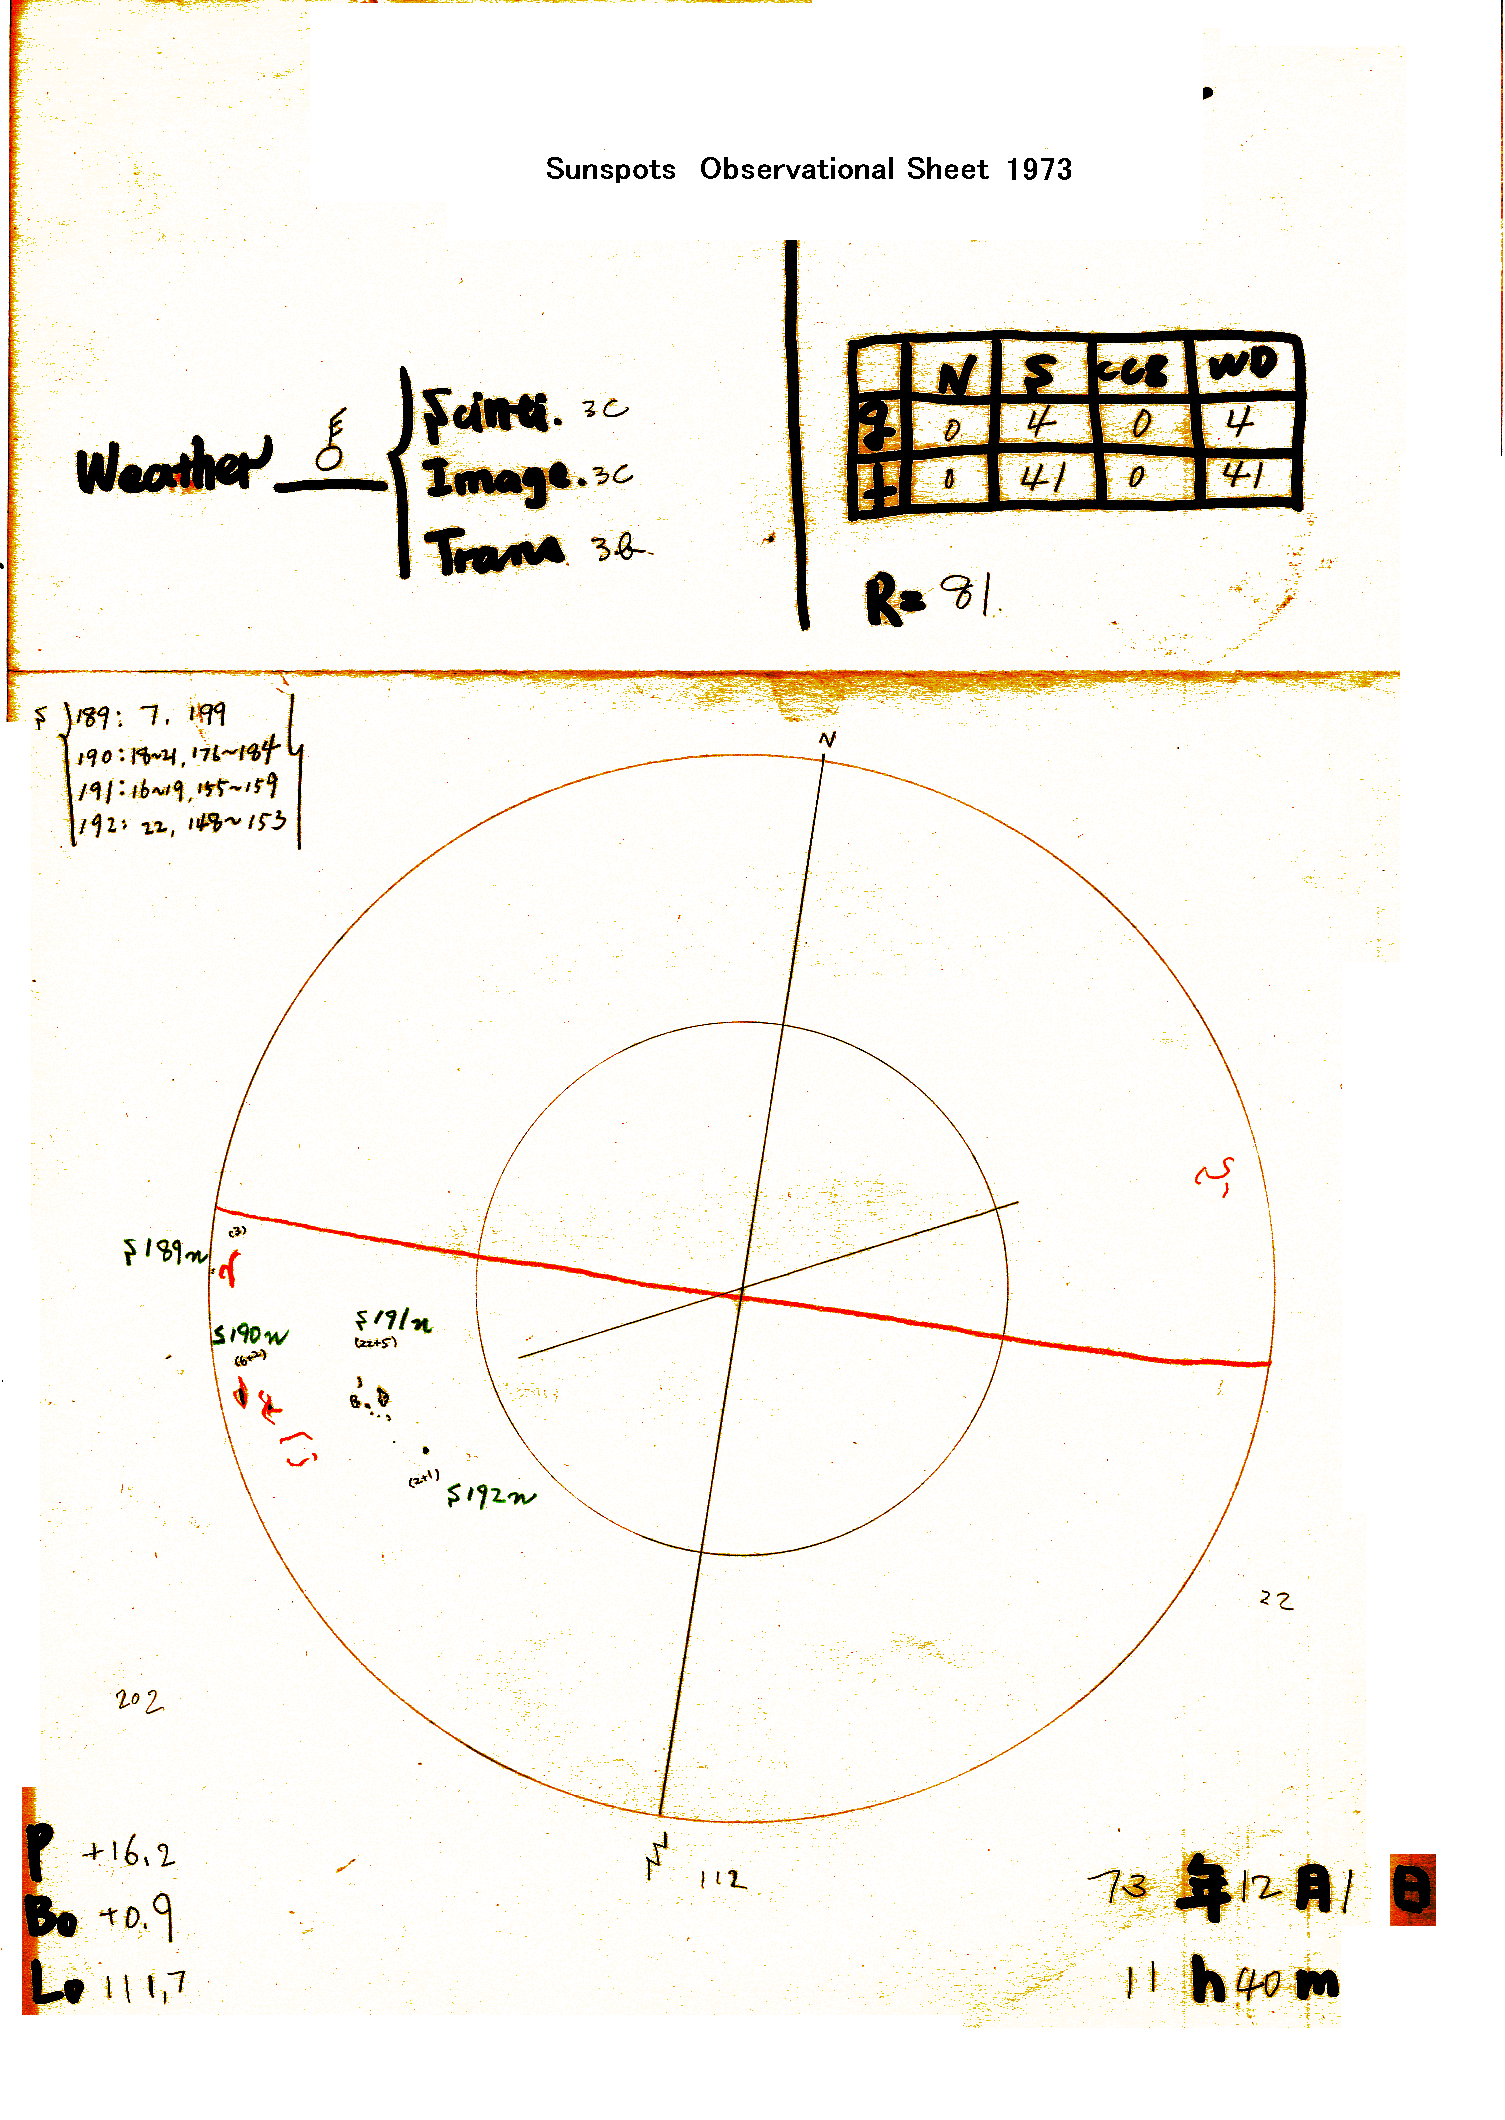 Sunspots Observational Sheet 1973
Weather
Scinti. 3C
Image. 3C
Trans 3b.
N S CC8 WD
g 0 4 0 4
f 0 41 0 41
R= 81.
S 189: 7, 199
190: 18~21, 176~184
191: 16~19, 155~159
192: 22, 148~153
N
S189n
(3)
S190n
(6+2)
S191n
(22+5)
(2+1)
S192n
22
202
112
P +16.2
Bo +0.9
Lo 111.7
73年12月1日
11h40m